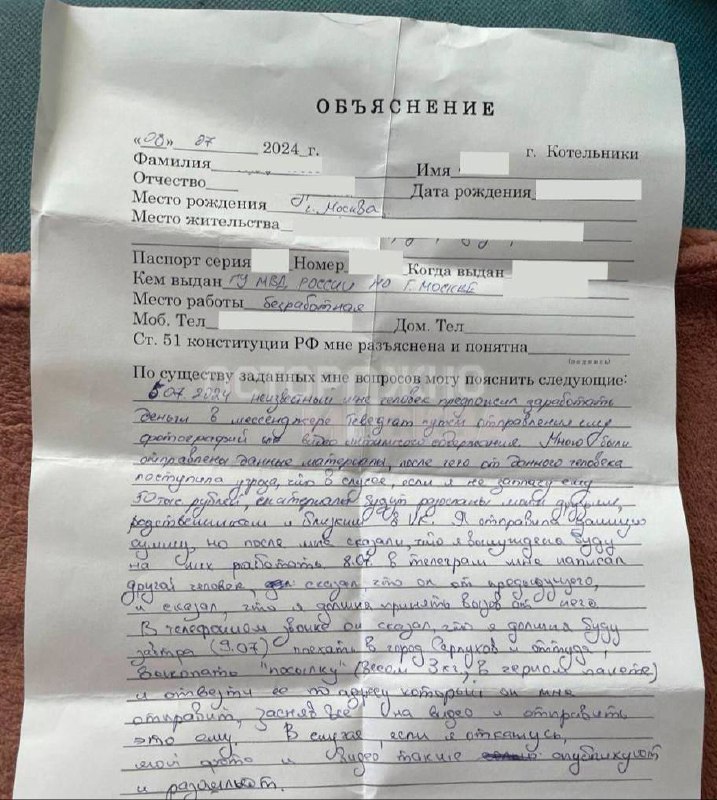 ОБЪЯСНЕНИЕ
«08» 07 2024 г. г. Котельники
Фамилия Имя
Отчество Дата рождения
Место рождения г. Москва
Место жительства
Паспорт серия Номер Когда выдан
Кем выдан ГУ МВД РОССИИ ПО Г. МОСКВЕ
Место работы безработная
Моб. Тел Дом. Тел
Ст. 51 конституции РФ мне разъяснена и понятна
(подпись)
По существу заданных мне вопросов могу пояснить следующие:
07.2024 неизвестный мне человек предложил заработать
деньги в мессенджере Телеграм путем отправления ему
фотографий или видео интимного содержания. Мною были
отправлены данные материалы, после чего от данного человека
поступила угроза, что в случае, если я не заплачу ему
50 тыс. рублей, материалы будут разосланы моим друзьям,
родственникам и близким в VK. Я отправила данную
сумму, но после мне сказали, что я вынуждена буду
на них работать. 8.07 в телеграм мне написал
другой человек, сказал что он от предыдущего,
и сказал, что я должна принять вызов от него
В телефонном звонке он сказал, что я должна буду
завтра (9.07) поехать в город Серпухов и оттуда
выкопать "посылку" (весом 3 кг, в черном пакете)
и отвезти ее по адресу который он мне
отправит, засняв всё на видео и отправить
это ему. В случае, если я откажусь,
мои фото и видео также опубликуют
и разошлют.